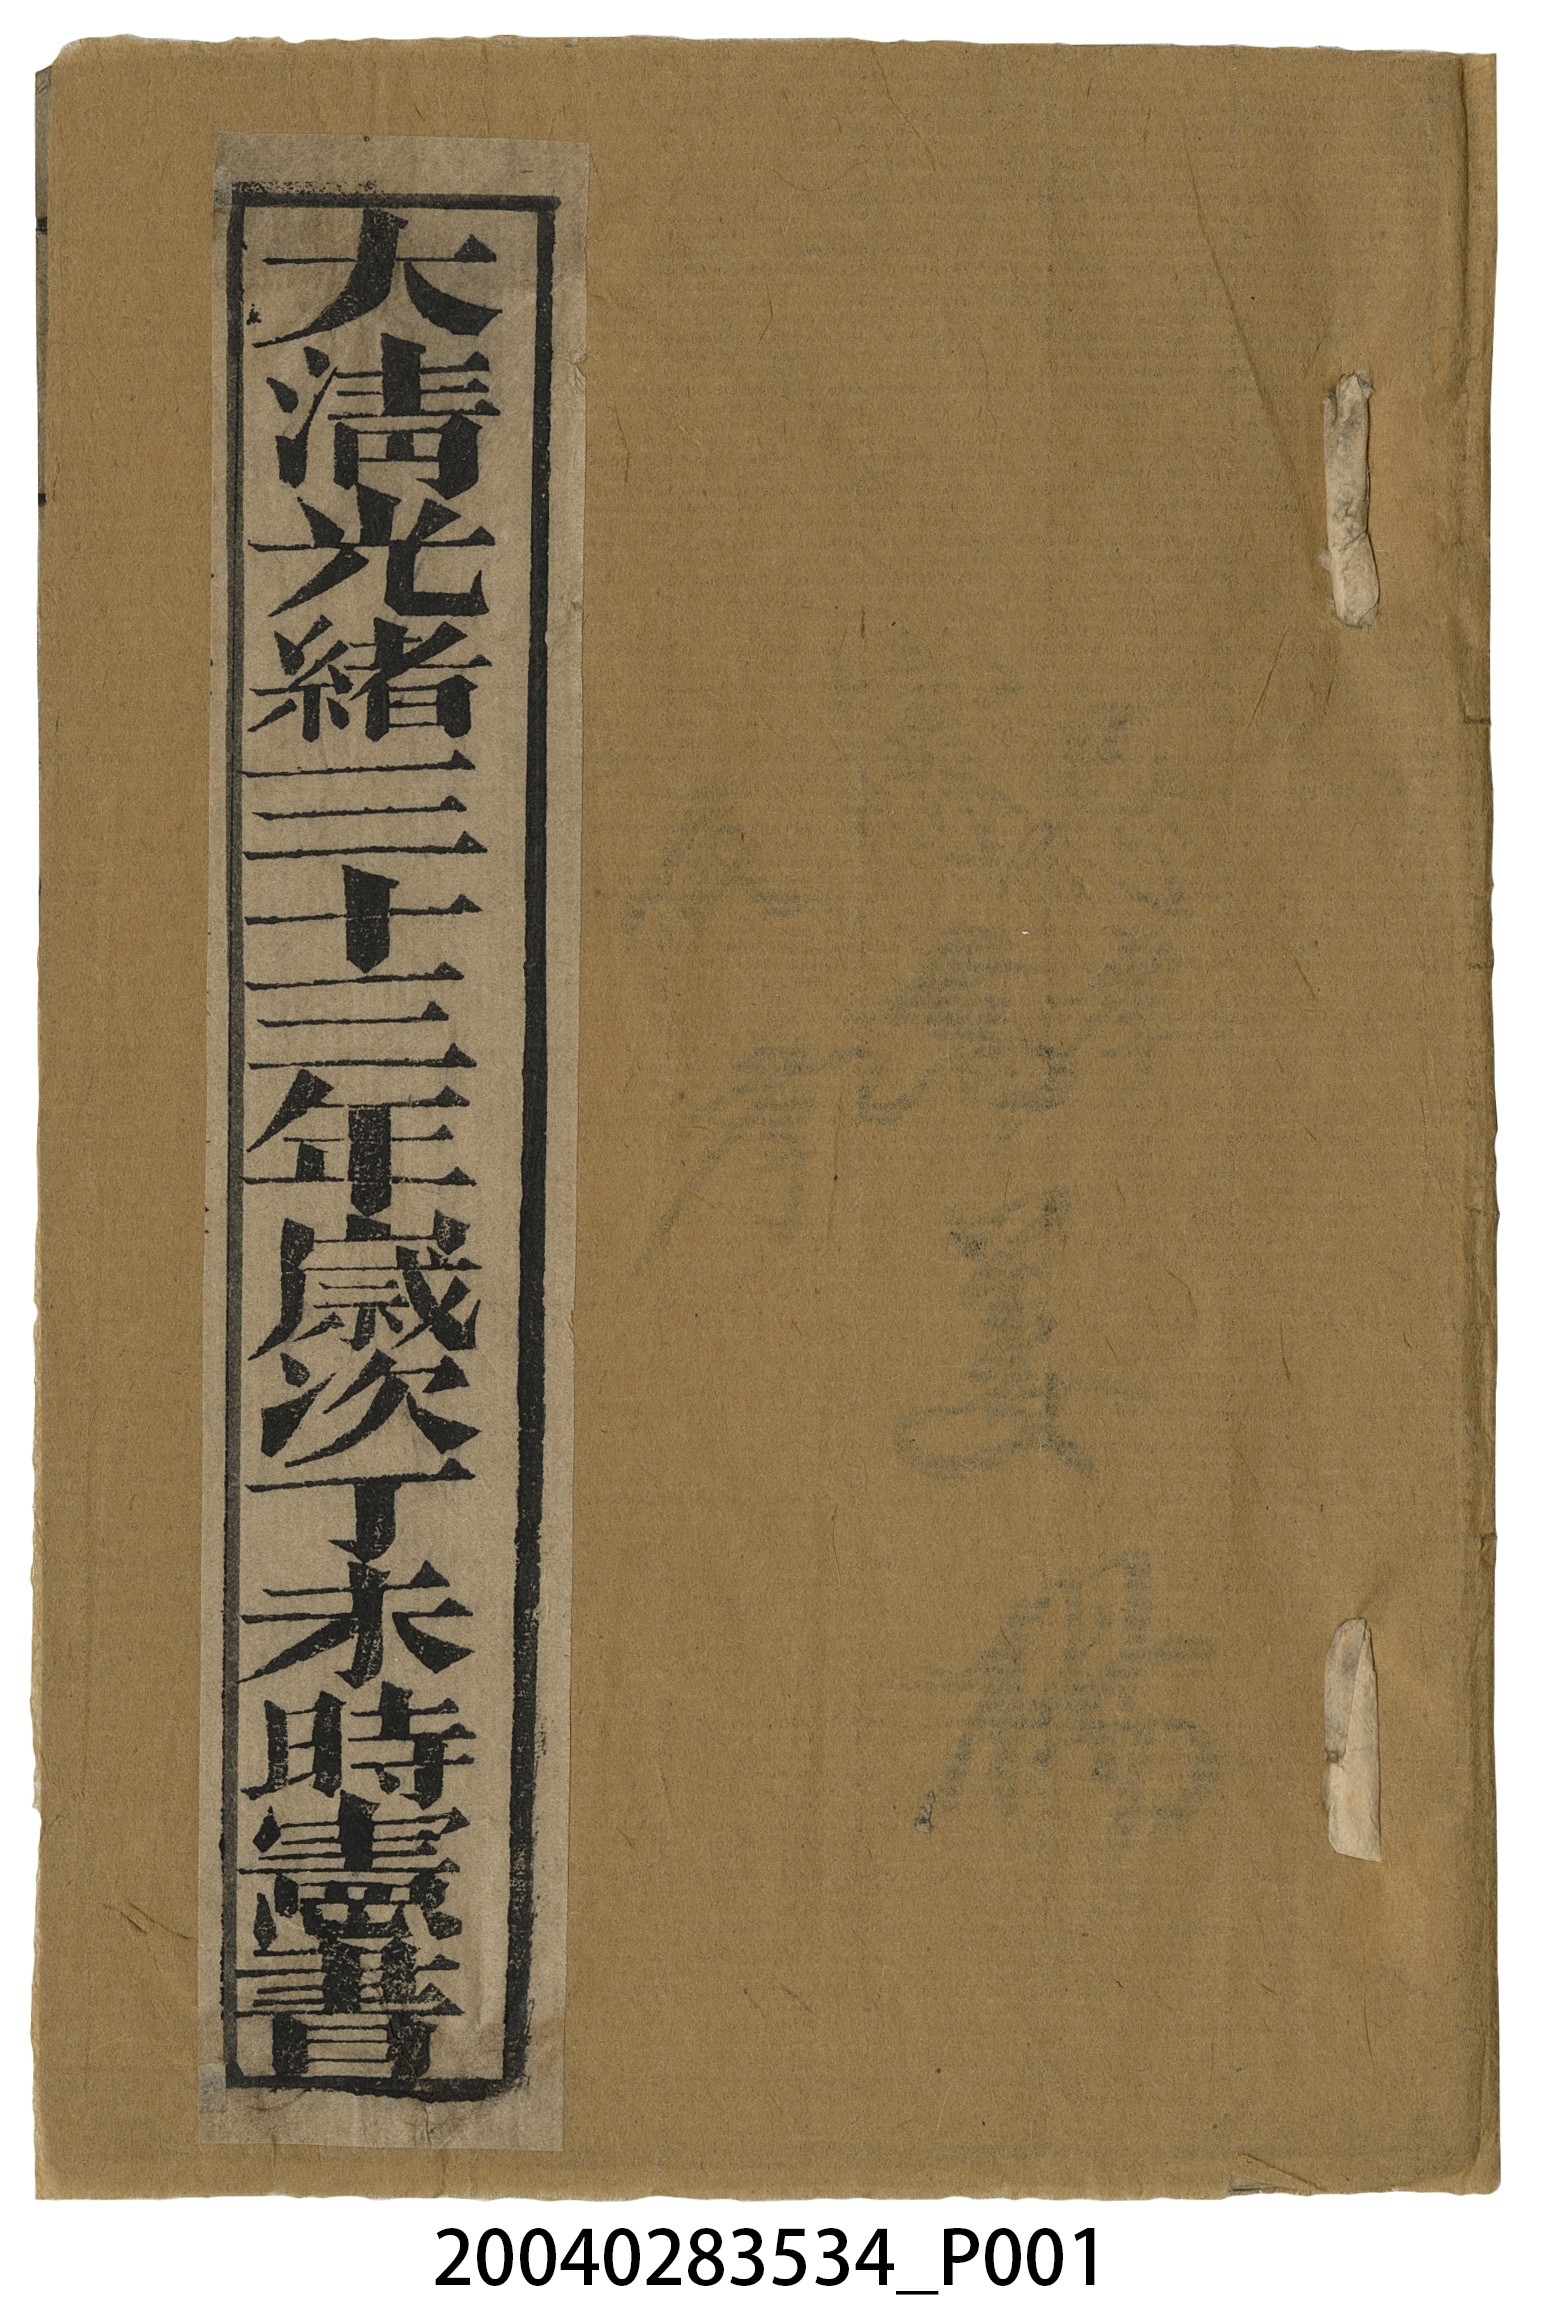 大清光緒三十三年歲次丁未時憲書
20040283534_P001